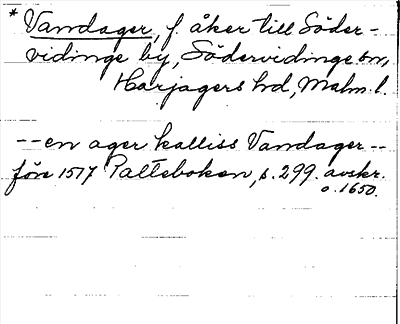 * Vandager, f. åker till Söder-
vidinge by, Södervidinge sn,
Harjagers hd, Malm. l.
--en ager kalliss Vandager--
före 1517 Palteboken, s. 299. avskr.
o. 1650.